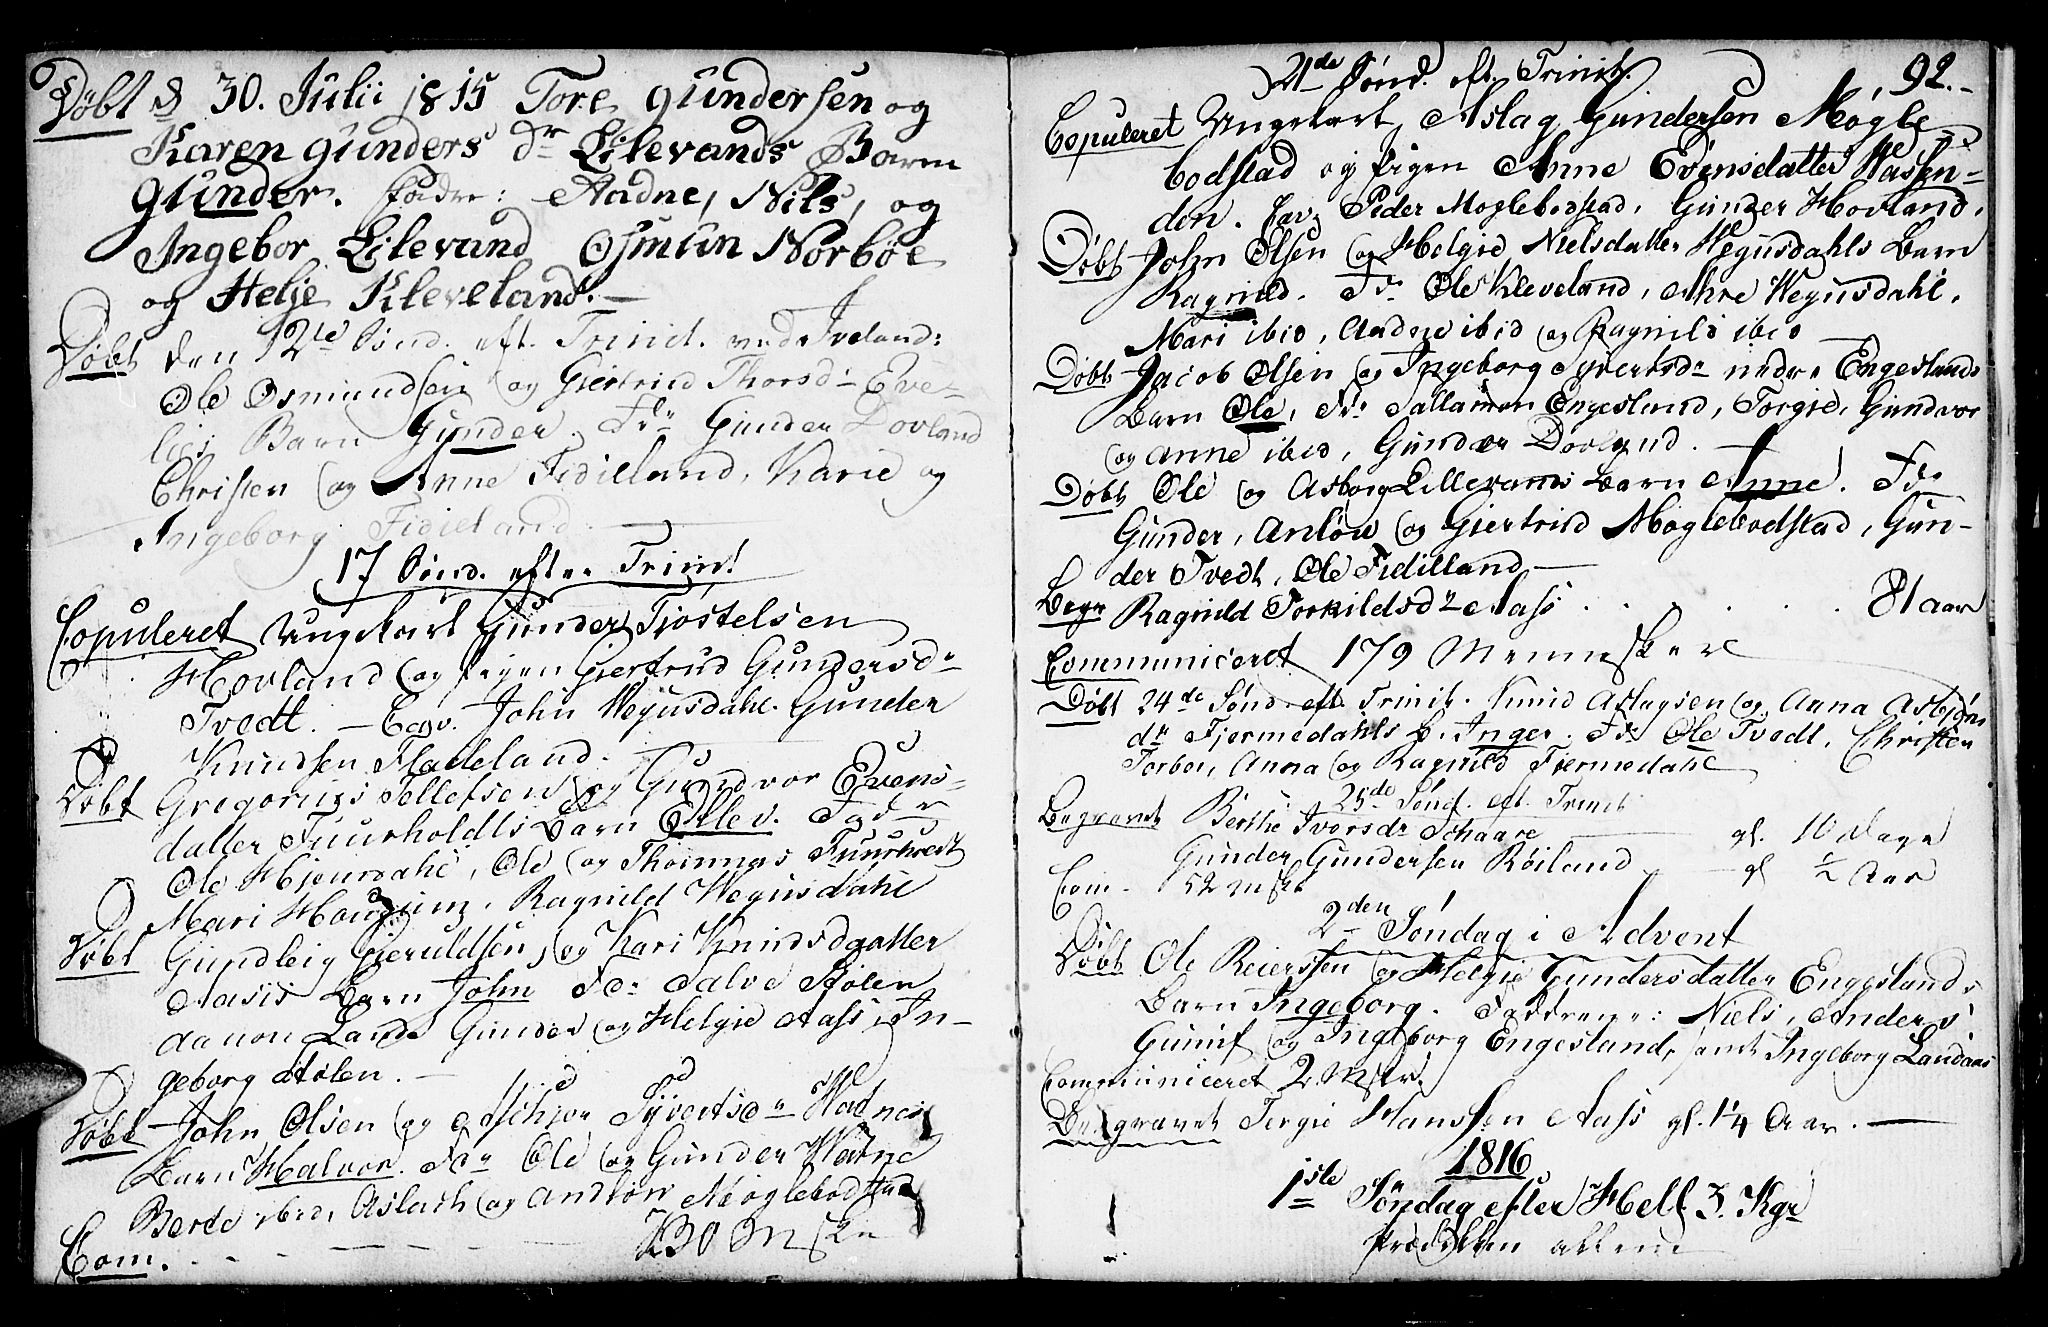 Döbt d 30. Julii 1815 Tore gundersen og
Karen gunders dr Lilevands Barn
gunder. fadre: Aadne, Nils, og
Ingebor Lilevand Osmun Norböe
og Helje Kleveland. —
Döbt den 12te Sönd. eft. Trinit. ved Iveland:
Ole Osmundsen og Giertrud Thorsdr Eve-
lies Barn Gunder. Fdr Gunder Dovland
Christen og Anne Fidieland, Karie og
Ingeborg Fidieland. —
17 Sönd. efter Trinit
Copuleret Ungekarl Gunder Tjostelsen
Hovland og pigen Giertrud Gundersdr
Tvedt. — Cav. John Wegusdahl. Gunder
Knudsen Fladeland.
Döbt Gregorius Tellefsen og Gundvor Evens-
datter Fuurholdts Barn Ellev. Fadr
Ole Hjeurdahl, Ole og Thomas Fuurholt
Mari, Ragnild Wegusdahl
Döbt Gundleig Gieruldsen og Kari Knudsdaatter
Aasis Barn John Fdr Salve Stölen
Gunder og Helgie Aass, In-
geborg Stölen. —
Döbt John Olsen og Syvertsdr Watnes
Barn Halvor. Fdr Ole og Gunder Watne
Berte ibid, Aslach og Andlow Möglebodstad
Com. - - - - - 230 Msk
92.
21de Sönd. eft. Trinit.
Copuleret Ungekarl Aslag Gundersen Mögle-
bodstad og pigen Anne Evensdatter Wassen-
den. Cav. Peder Moglebodstad, Gunder Hovland.
Döbt John Olsen og Helgie Nielsdatter Wegusdahls Barn
Ragnild. Fdr Ole Kleveland, Wegusdahl,
Mari ibid, Aadne ibid og Ragnild ibid
Döbt Jacob Olsen og Ingeborg Syvertsdr nedre Engeslands
Barn Ole, Fdr Engesland, Torgie, Gundvor
og anne ibid, Gunder Dovland.
Döbt Ole og Asborg Lillevands Barn Anne. Fdr
Gunder, Anlöw og Giertrud Möglebodstad, Gun-
der Tvedt, Ole Fidilland —
Begr Ragnild Torkildsdr Aass . . . . . 81 aar
Communiceret 179 Mennesker
Döbt 24de Sönd. eft. Trinit. Knud Aslagsen og Anna Asbjöns
dr Fjermedahls B. Inger. Fdr Ole Tvedt, Christen
Torbor, Anna og Ragnild Fiermedahl
25de Sönd. eft. Trinit
Begravet Berthe Iversdr gl. 10 Dage
Gunder Gundersen Röiland gl ½ Aar
Com - 52 Msk
2den Söndag i Advent
Döbt Ole Reierssen og Helgie Gundersdatter Engeslands
Barn Ingeborg. Faddrene: Niels, Anders,
Gunuf og Ingeborg Engesland, samt Ingeborg Landaas
Communiceret 2 Msk.
Begravet Tergie Hanssen Aass gl. 14 Aar. —
1816
1ste Söndag efter Hell 3. Kgr
prædiken allene